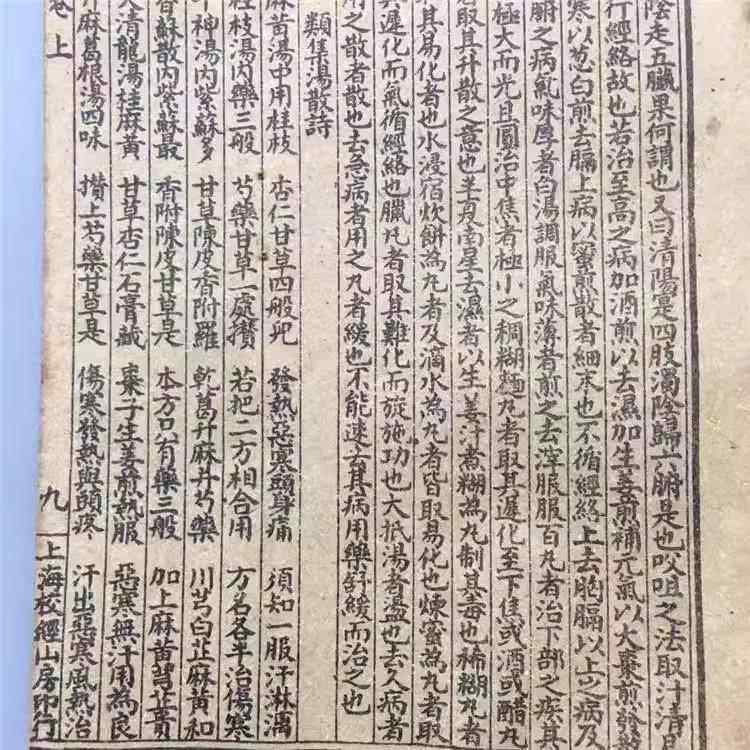 陰走五臟果何謂也又曰清陽寔四肢濁陰歸六腑是也㕮咀之法取汁清
行經絡故也若治至高之病加酒煎以去濕加生姜煎補元氣以大棗煎發散
寒以葱白煎去膈上病以蜜煎散者細末也不循經絡上去胸膈以上之病及
腑之病氣味厚者白湯調服氣味薄者煎之去滓服服百丸者治下部之疾其
極大而光且圓治中焦者極小之稠糊麵丸者取其遲化至下焦或酒或醋丸
者取其升散之意也半夏南星去濕者以生姜汁煮糊為丸制其毒也稀糊丸者
其易化者也水浸宿炊餅為丸者及滴水為丸者皆取易化也煉蜜為丸者取
其遲化而氣循經絡也臘丸者取其難化而旋施功也大抵湯者盪也去久病者
用之散者散也去急病者用之丸者緩也不能速去其病用藥舒緩而治之也
類集湯散詩
麻黄湯中用桂枝 杏仁甘草四般兒 發熱惡寒頭身痛 須知一服汗淋漓
桂枝湯内藥三般 芍藥甘草一處攅 若把二方相合用 方名各半治傷寒
神湯内紫蘇多 甘草陳皮香附羅 乾葛升麻并芍藥 川芎白芷麻黄和
香蘇散内紫蘇最 香附陳皮甘草是 本方只有藥三般 加上麻黄
大清龍湯桂麻黄 甘草杏仁石膏藏 棗子生姜煎熱服 惡寒無汗用為良
升麻葛根湯四味 攅上芍藥甘草是 傷寒發熱與頭疼 汗出惡寒風熱治
卷上 九 上海校經山房印行